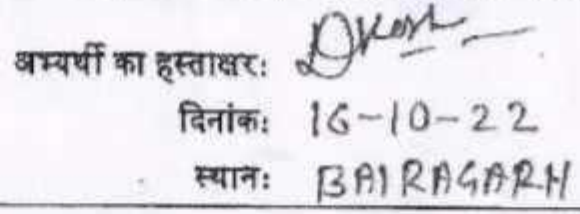 अभ्यर्थी का हस्ताक्षर:
दिनांक: 16-10-22
स्थान: BAIRAGARH